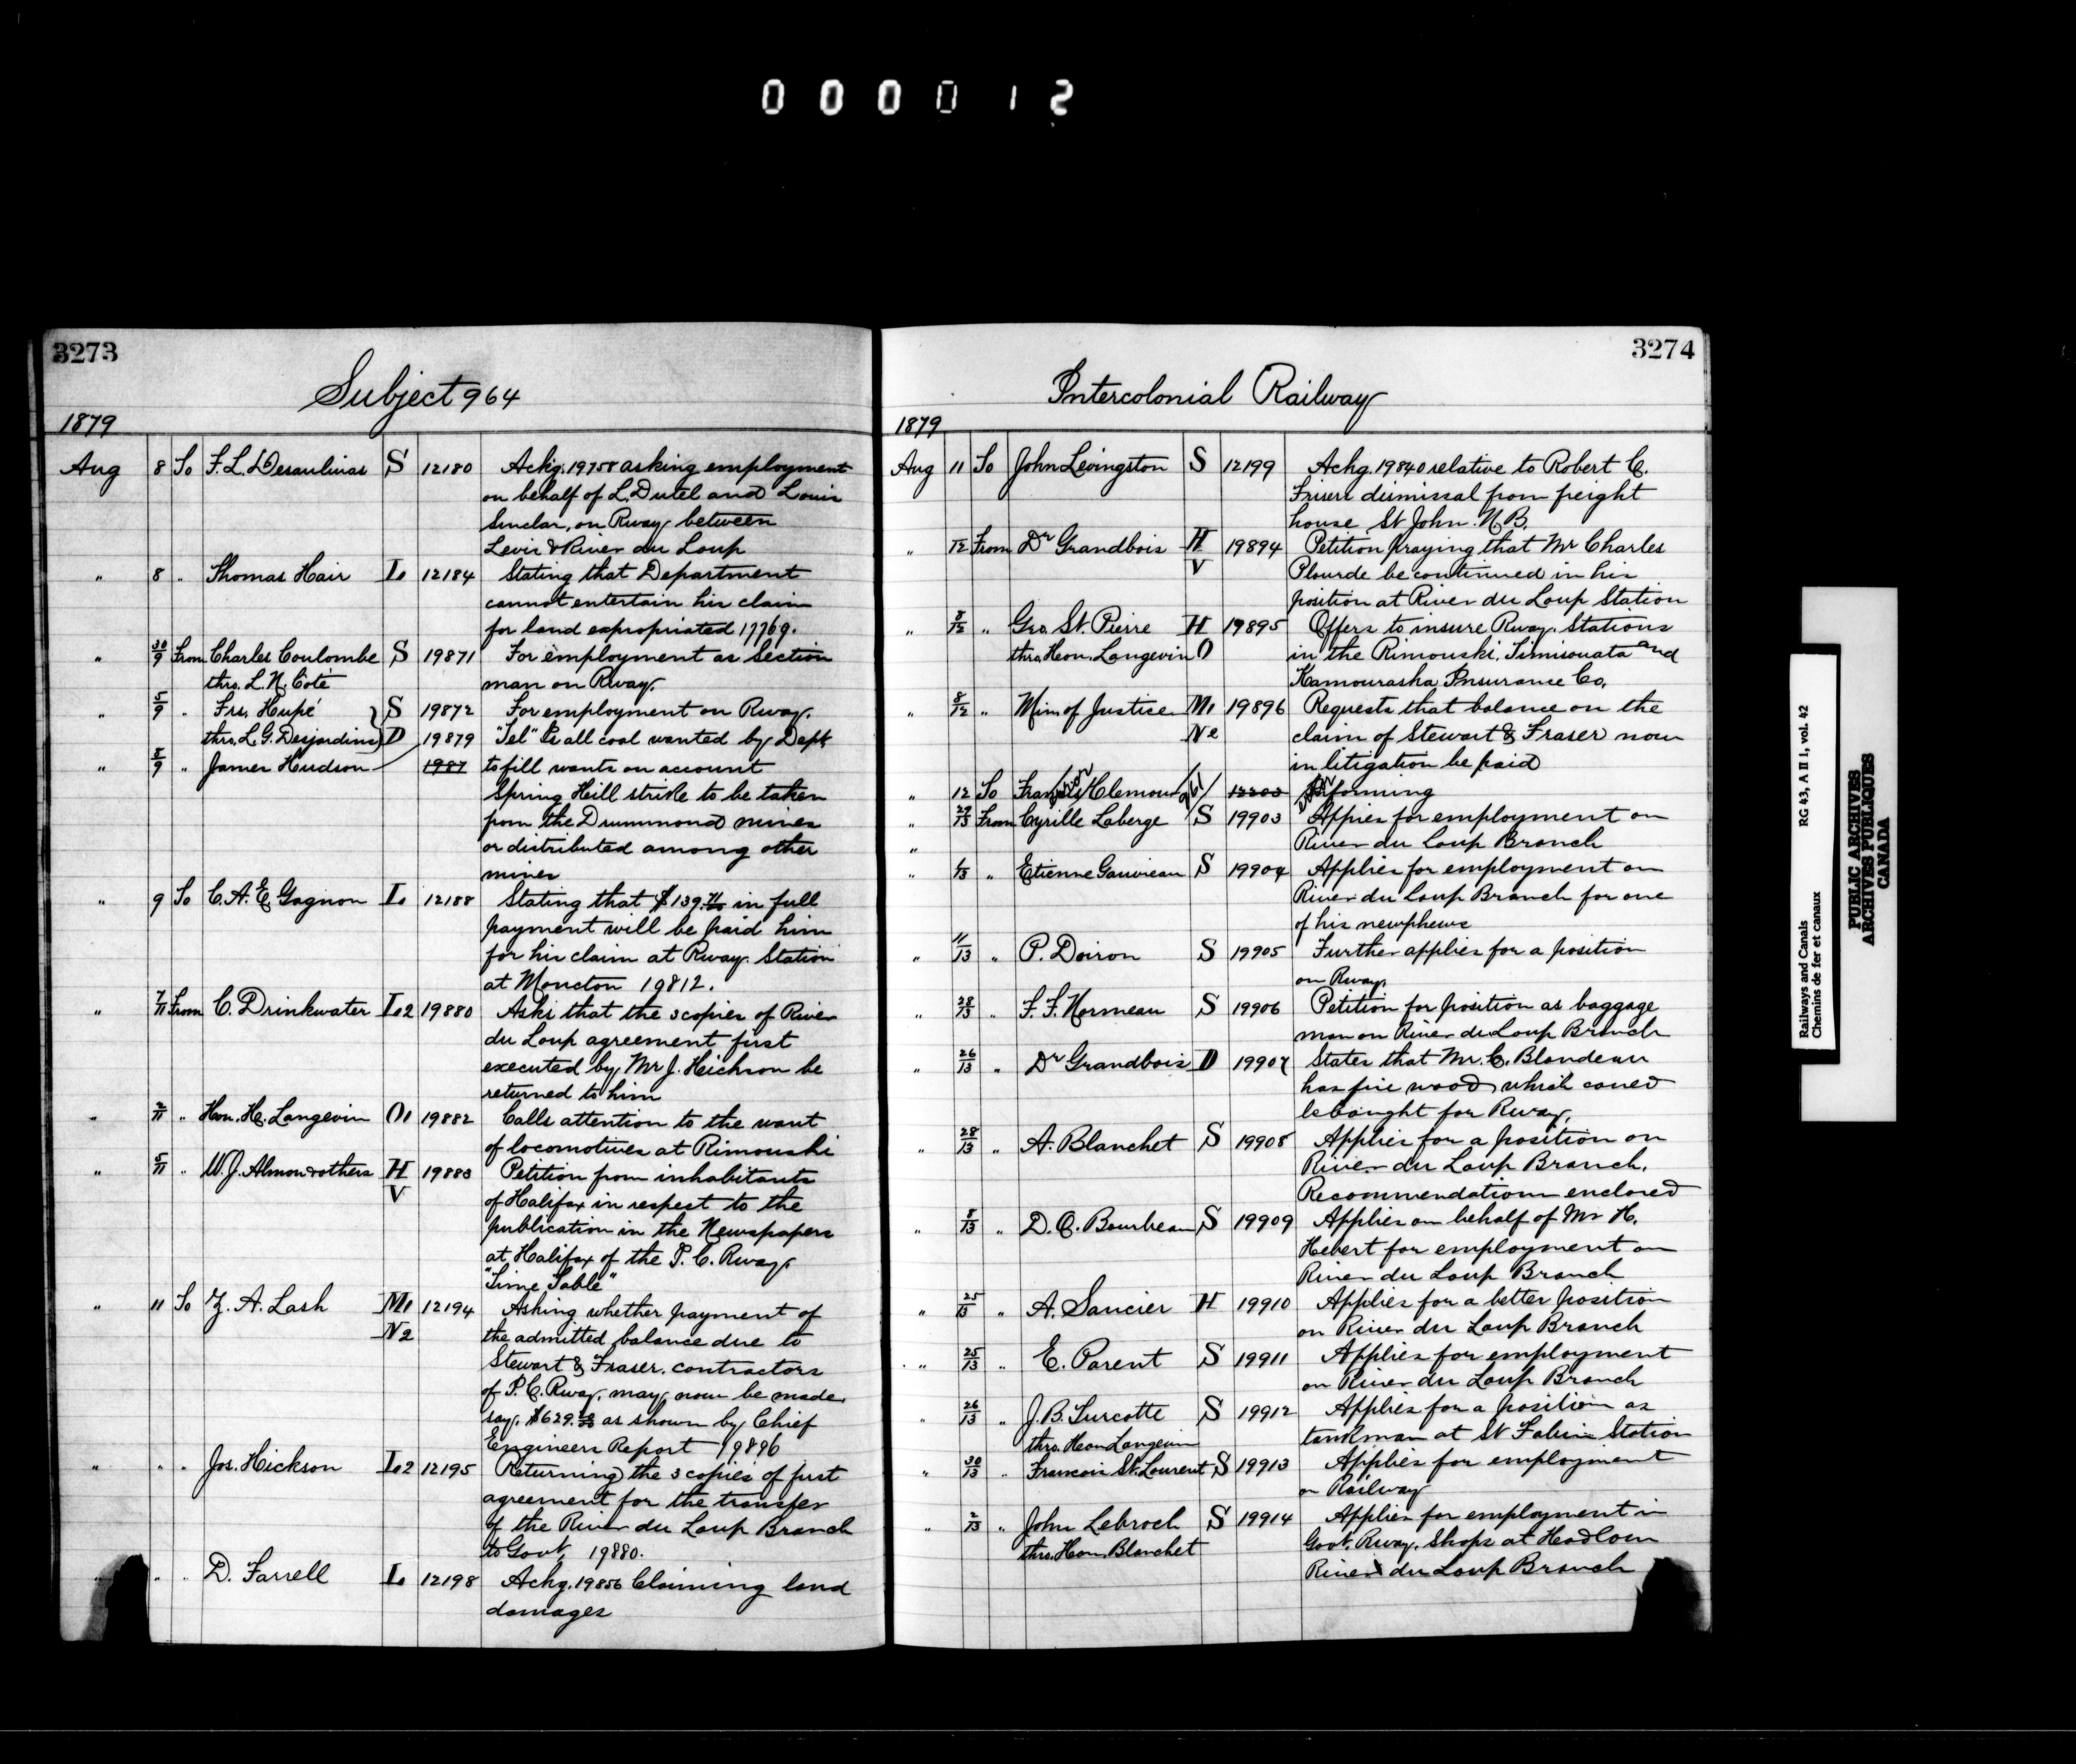 000012
3273
Subject 964
1879
Aug 8 To F. L. Desaulinas S 12180 Ackg. 19758 asking employment
on behalf of L. Dutel and Louis
Sinclar, on Rway between
Levis & River du Loup
" 8 " Thomas Hair L1 12184 Stating that Department
cannot entertain his claim
for land expropriated 17769.
" 30/9 From Charles Coulombe S 19871 For employment as Section
thro. L. N. Coté man on Rway.
" 5/9 " Frs. Hupé S 19872 For employment on Rway.
thro. L. G. Desjardins D 19879 "Tel" Is all coal wanted by Dept
" 8/9 " James Hudson 1987 to fill wants on account
Spring Hill strike to be taken
from the Drummond mines
or distributed among other
mines
" 9 To C. A. E. Gagnon L1 12188 Stating that $139. in full
payment will be paid him
for his claim at Rway. Station
at Moncton 19812.
" 7/11 From C. Drinkwater L2 19880 Asks that the 3 copies of River
du Loup agreement first
executed by Mr J. Hickson be
returned to him
" 2/11 " Hon. H. Langevin O1 19882 Calls attention to the want
of locomotives at Rimouski
" 5/11 " W. J. Almon & others H 19883 Petition from inhabitants
V of Halifax in respect to the
publication in the Newspapers
at Halifax of the I. C. Rway.
"Time Table"
" 11 To Z. A. Lash M1 12194 Asking whether payment of
N2 the admitted balance due to
Stewart & Fraser. contractors
of I. C. Rway. may now be made
say. $629. as shown by Chief
Engineers Report 19896
" " " Jos. Hickson L2 12195 Returning the 3 copies of first
agreement for the transfer
of the River du Loup Branch
to Govt. 19880.
" " D. Farrell L1 12198 Ackg. 19856 Claiming land
damages
3274
Intercolonial Railway
1879
Aug 11 To John Livingston S 12199 Ackg. 19840 relative to Robert C.
dismissal from freight
house St John. N.B.
" /12 From Dr Grandbois H 19894 Petition praying that Mr Charles
V Plourde be continued in his
position at River du Loup Station
" 8/12 " Geo. St. Pierre H 19895 Offers to insure Rway. Stations
thro. Hon. Langevin O in the Rimouski, Timisouata and
Kamouraska Insurance Co.
" 8/12 " Min. of Justice M1 19896 Requests that balance on the
N2 claim of Stewart & Fraser now
in litigation be paid
" 12 To Francis Clemow 12203 Informing
" 29/13 From Cyrille Laberge S 19903 Appies for employment on
" River du Loup Branch
" 1/13 " Etienne Gauvreau S 19904 Applies for employment on
River du Loup Branch for one
of his newphews
" 11/13 " P. Doiron S 19905 Further applies for a position
on Rway.
" 28/13 " F. F. Normeau S 19906 Petition for position as baggage
man on River du Loup Branch
" 26/13 " Dr Grandbois D 19907 States that Mr. C. Blondeau
has fire wood which coued
be bought for Rway.
" 28/13 " A. Blanchet S 19908 Applies for a position on
River du Loup Branch.
Recommendations enclosed
" 8/13 " D. O. Bourbeau S 19909 Applies on behalf of Mr H.
Hebert for employment on
River du Loup Branch
" 25/13 " A. Saucier H 19910 Applies for a better position
on River du Loup Branch
" 25/13 " E. Parent S 19911 Applies for employment
on River du Loup Branch
" 26/13 " J. B. Turcotte S 19912 Applies for a position as
thro. Hon Langevin tankman at St Fabin Station
" 30/13 " Francois St. Laurent S 19913 Applies for employment
on Railway
" 2/13 " John Lebroch S 19914 Applies for employment in
thro. Hon. Blanchet Govt. Rway. Shops at Hadlow
River du Loup Branch
Railways and Canals RG 43, A II 1, vol. 42
Chemins de fer et canaux
PUBLIC ARCHIVES
ARCHIVES PUBLIQUES
CANADA